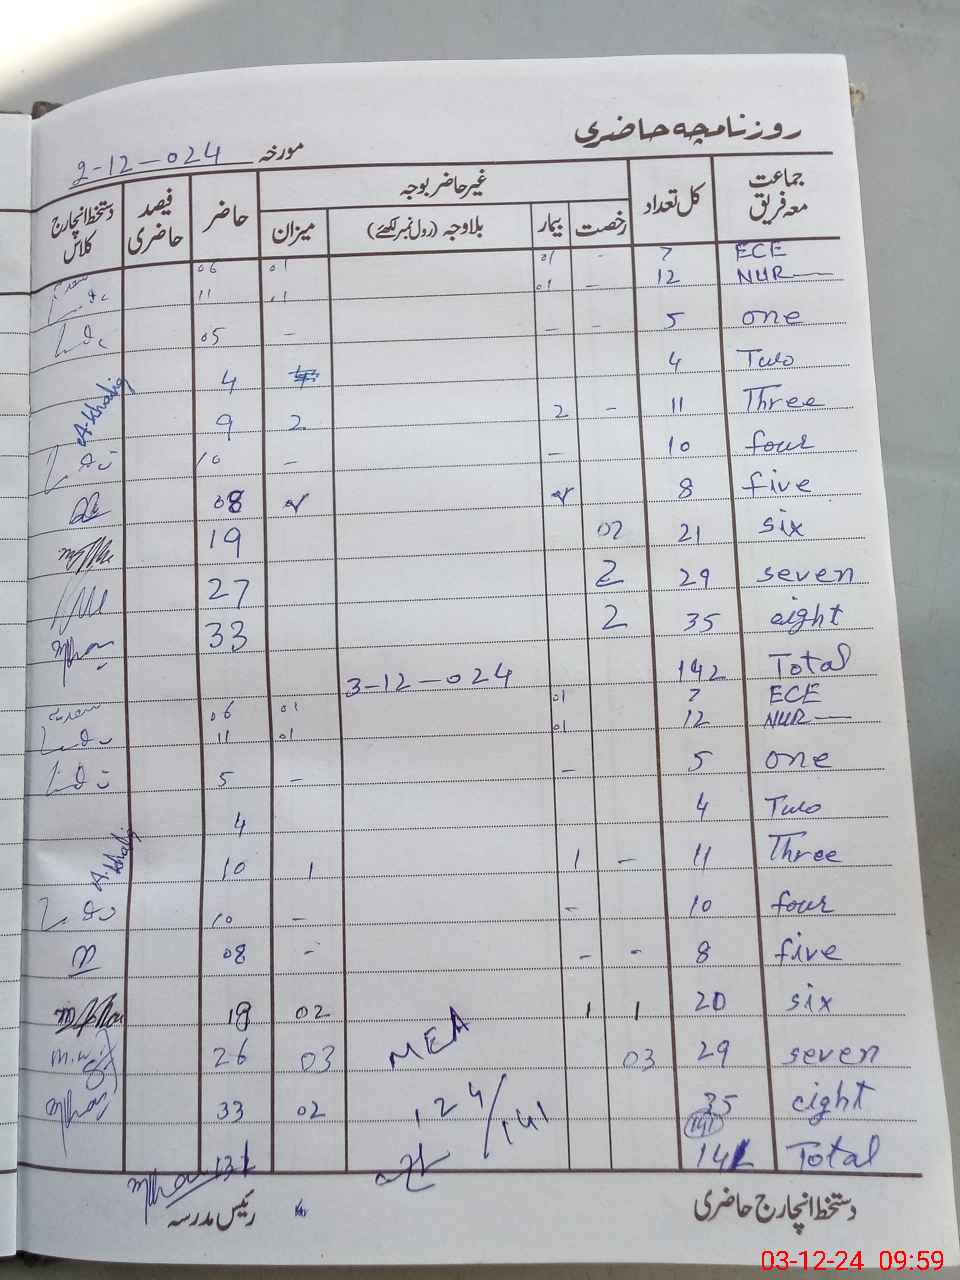 روزنامچہ حاضری
مورخہ 2-12-024
جماعت معہ فریق کل تعداد غیر حاضر بوجہ حاضر فیصد حاضری دستخط انچارج کلاس
رخصت بیمار بلاوجہ (رول نمبر لکھئے) میزان
ECE 7 - 01 01 06
NUR 12 - 01 01 11
one 5 - - - 05
Two 4 4 A.khaliq
Three 11 - 2 2 9
four 10 - - 10
five 8 08
six 21 02 19
seven 29 2 27
eight 35 2 33
Total 142
3-12-024
ECE 7 01 01 06 سعدیہ
NUR 12 01 01 11
one 5 - - 5
Two 4 4
Three 11 - 1 1 10 A.khaliq
four 10 - - 10
five 8 - - - 08
six 20 1 1 02 18
seven 29 03 03 26
MEA
eight 35 02 33
124/141
141
Total 141 131
دستخط انچارج حاضری رئیس مدرسہ
03-12-24 09:59